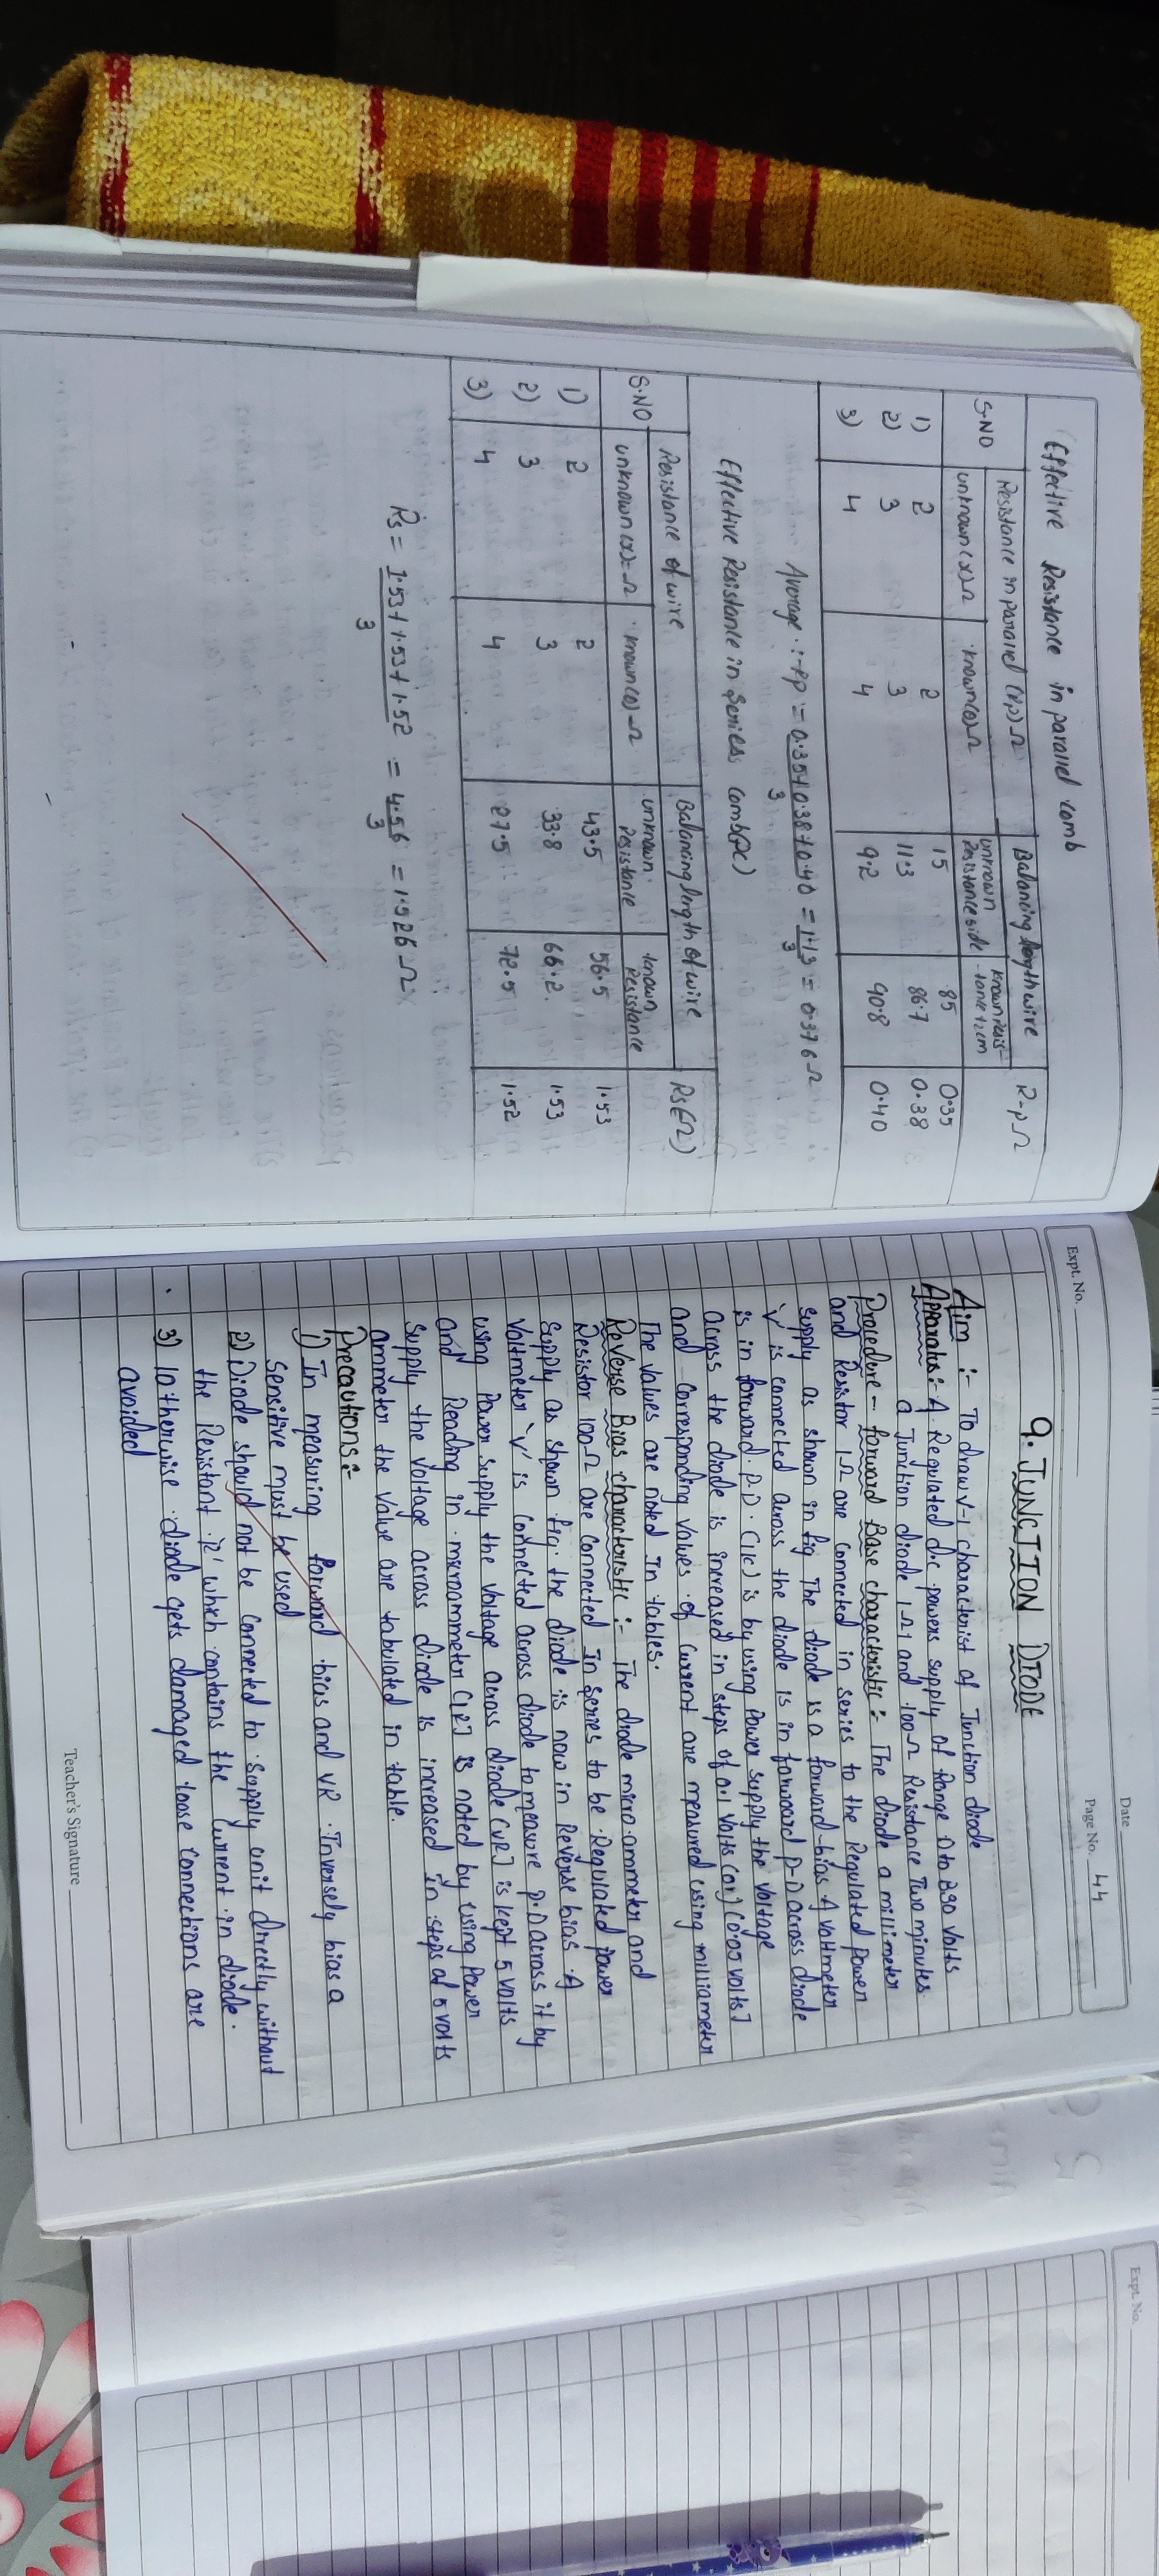 Effective Resistance in parallel comb
S.NO
Resistance in parallel (Rp) Ω
Balancing length wire
R-p Ω
unknown (x) Ω
known (s) Ω
unknown Resistance side
known resis-
1) 2 2 15 85 0.35
2) 3 3 11.3 86.7 0.38
3) 4 4 9.2 90.8 0.40
Average :- Rp = 0.35+0.38+0.40 / 3 = 1.13 / 3 = 0.376 Ω
Effective Resistance in Series comb
S.NO
Resistance of wire
Balancing length of wire
Rs(Ω)
unknown (x)= Ω
known (s) Ω
unknown Resistance
known Resistance
1) 2 2 43.5 56.5 1.53
2) 3 3 33.8 66.2. 1.53
3) 4 4 27.5 72.5 1.52
Rs = 1.53+1.53+1.52 / 3 = 4.56 / 3 = 1.526 Ω
Expt. No.
Date
Page No. 44
9. JUNCTION DIODE
Aim :- To draw v-1 characterist of Junction diode
Apparatus:- A Regulated d.c powers supply of Range 0 to 290 volts
a Junction diode 1Ω1 and 100Ω Resistance Two minutes.
Procedure - forward Base characteristic :- The diode a millimeter
and Resistor 1Ω are connected in series to the Regulated Power
supply as shown in fig The diode is a forward-bias A voltmeter
'V' is connected across the diode is in forward P-D across diode
is in forward. P.D. is by using Power supply the voltage
across the diode is increased in steps of 0.1 volts (or) (0.05 volts]
and corresponding values of current are measured using milliameter
The values are noted In tables.
Reverse Bias characteristic :- The diode micro-ammeter and
Resistor 100Ω are connected In series to be Regulated power
Supply as shown fig. the diode is now in Reverse bias. A
Voltmeter 'V' is connected across diode to measure P.D across it by
using Power supply the voltage across diode (VR] is kept 5 volts
and Reading in microammeter (IR] is noted by using Power
supply the voltage across diode is increased in steps of 5 volts
ammeter the value are tabulated in table.
Precautions :-
1) In measuring forward bias and VR Inversely bias a
Sensitive must be used
2) Diode should not be connected to supply unit directly without
the Resistant 'R' which contains the current in diode.
3) 10therwise diode gets damaged loose connections are
avoided
Teacher's Signature
Expt. No.